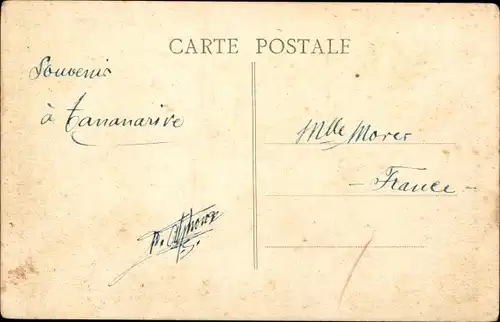 CARTE POSTALE
Souvenir
à Tananarive
Mlle Morer
- France -